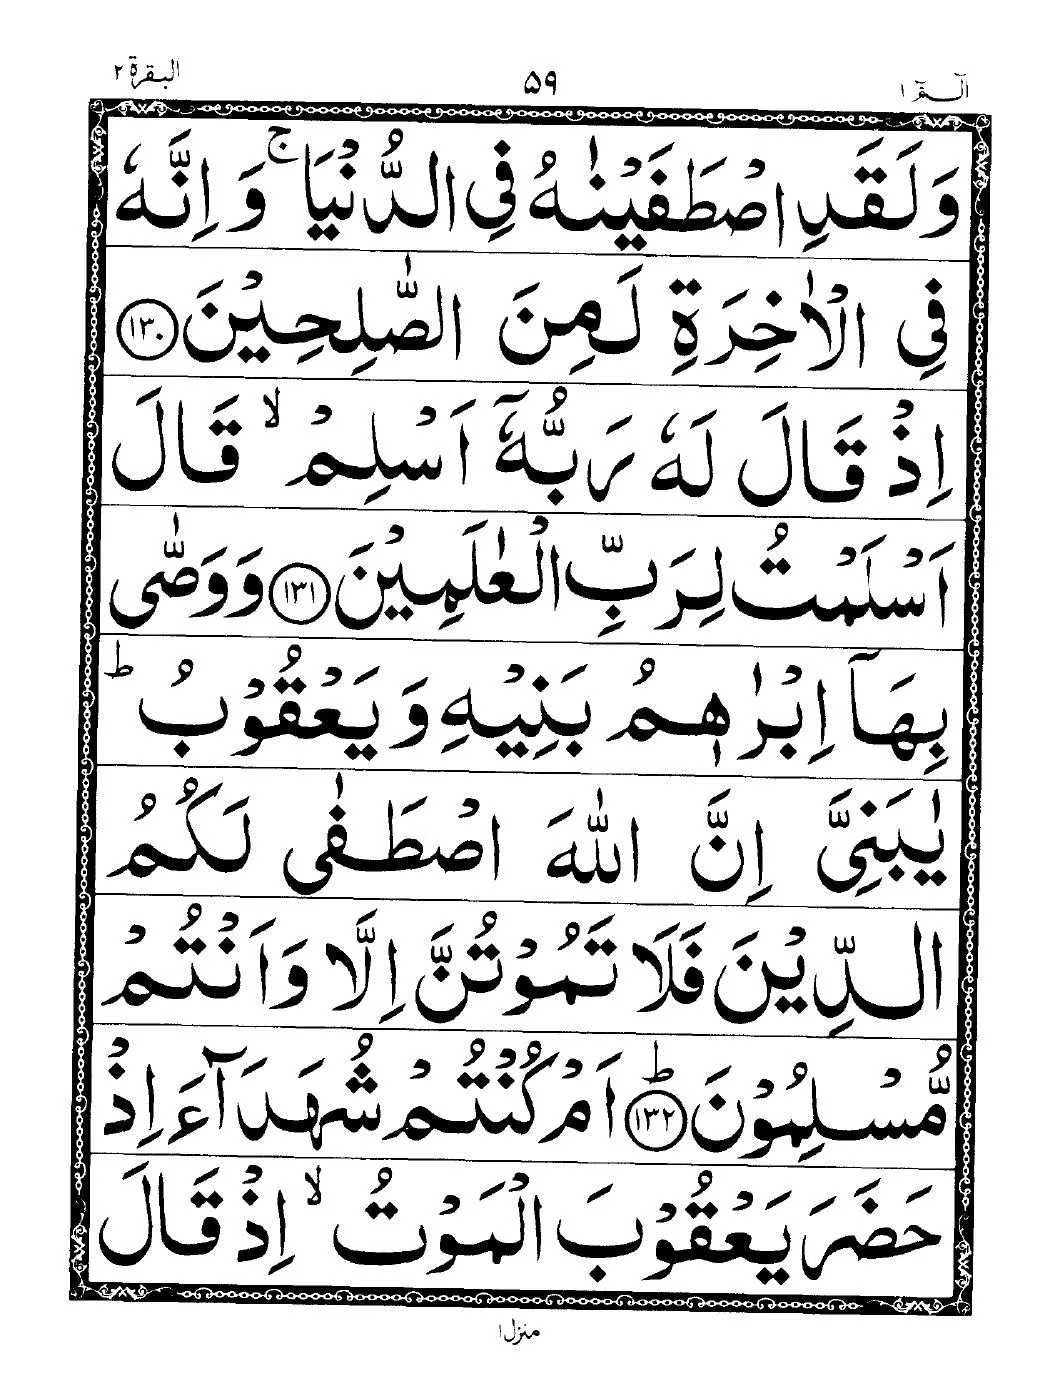 الٓـمّٓ ١ ٥٩ البقرة ٢
وَلَقَدِ اصْطَفَيْنٰهُ فِي الدُّنْيَا ۚ وَ اِنَّهٗ
فِي الْاٰخِرَةِ لَمِنَ الصّٰلِحِيْنَ ١٣٠
اِذْ قَالَ لَهٗ رَبُّهٗۤ اَسْلِمْ ۙ قَالَ
اَسْلَمْتُ لِرَبِّ الْعٰلَمِيْنَ ١٣١ وَوَصّٰى
بِهَاۤ اِبْرٰهٖمُ بَنِيْهِ وَ يَعْقُوْبُ ؕ
يٰبَنِيَّ اِنَّ اللّٰهَ اصْطَفٰى لَكُمُ
الدِّيْنَ فَلَا تَمُوْتُنَّ اِلَّا وَ اَنْتُمْ
مُّسْلِمُوْنَ ؕ ١٣٢ اَمْ كُنْتُمْ شُهَدَآءَ اِذْ
حَضَرَ يَعْقُوْبَ الْمَوْتُ ۙ اِذْ قَالَ
منزل ١